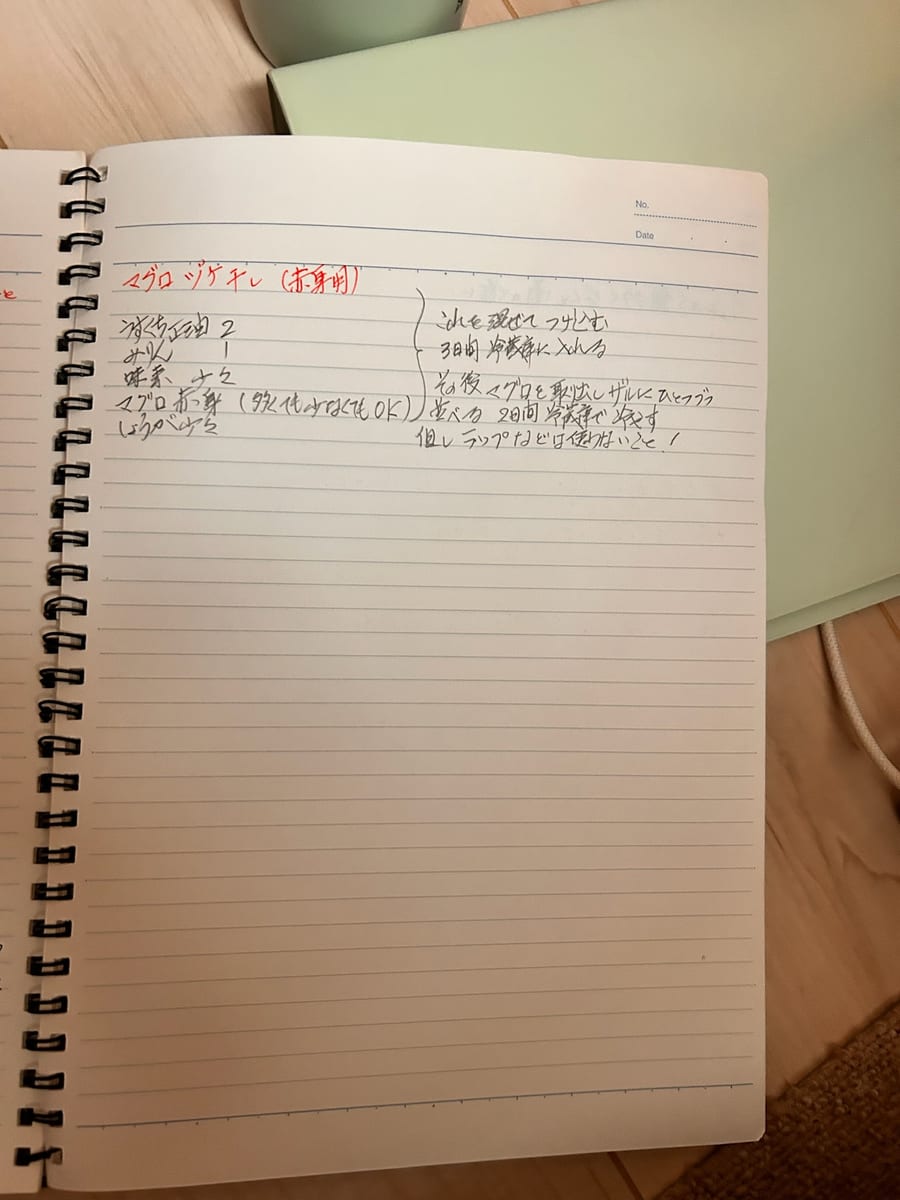 No.
Date
マグロ ヅケ干し (赤身用)
うすくち正油 2
みりん 1
味素 少々
マグロ赤身 (多くても少なくてもOK)
しょうが少々
これを混ぜて つけ込む
3日間 冷蔵庫に入れる
その後 マグロを取出しザルにひとつづつ
並べる 2日間 冷蔵庫で冷やす
但し ラップなどは使わないこと!